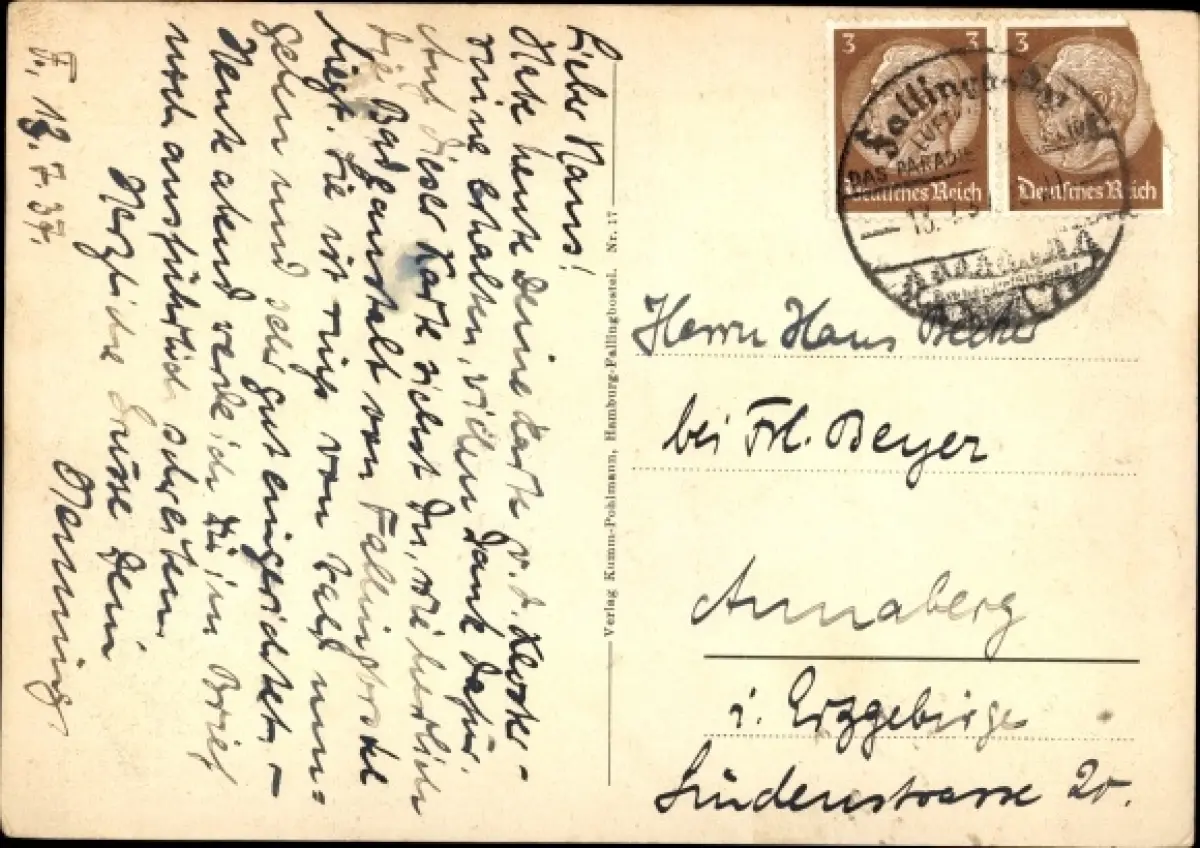 Lieber Hans!
Habe heute Deine Karte v. d.
erhalten, vielen Dank dafür.
Auf dieser Karte siehst Du, wie herrlich
die Badeanstalt von Fallingbostel
liegt. Sie ist rings von Wald um-
geben und sehr gut eingerichtet. –
Heute abend werde ich Dir im Brief
noch ausführlich schreiben.
Herzliche Grüsse Dein
Henning.
F., 13.7.37.
Verlag Kumm-Pohlmann, Hamburg-Fallingbostel. Nr. 17
3 3
Deutsches Reich
3
Deutsches Reich
Fallingbostel
DAS PARADIES
13.7.3
Herrn Hans Becker
bei Frl. Beyer
Annaberg
i. Erzgebirge
Lindenstrasse 20.